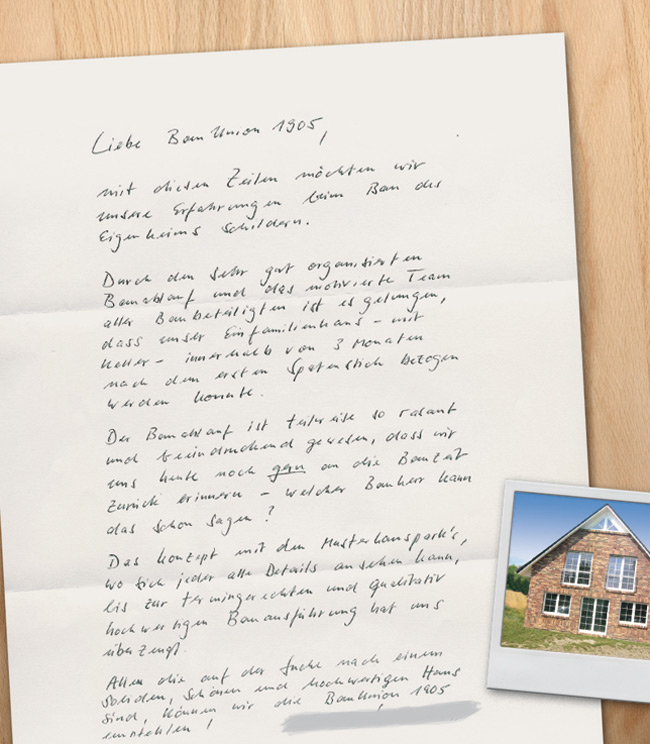 Liebe BauUnion 1905,
mit diesen Zeilen möchten wir
unsere Erfahrungen beim Bau des
Eigenheims schildern.
Durch den sehr gut organisierten
Bauablauf und das motivierte Team
aller Baubeteiligten ist es gelungen,
dass unser Einfamilienhaus - mit
Keller - innerhalb von 3 Monaten
nach dem ersten Spatenstich bezogen
werden konnte.
Der Bauablauf ist teilweise so rasant
und beeindruckend gewesen, dass wir
uns heute noch gern an die Bauzeit
zurück erinnern - welcher Bauherr kann
das schon sagen?
Das Konzept mit den Musterhauspark's,
wo sich jeder alle Details ansehen kann,
bis zur termingerechten und qualitativ
hochwertigen Bauausführung hat uns
überzeugt.
Allen die auf der Suche nach einem
soliden, schönen und hochwertigen Haus
sind, können wir die BauUnion 1905
empfehlen!